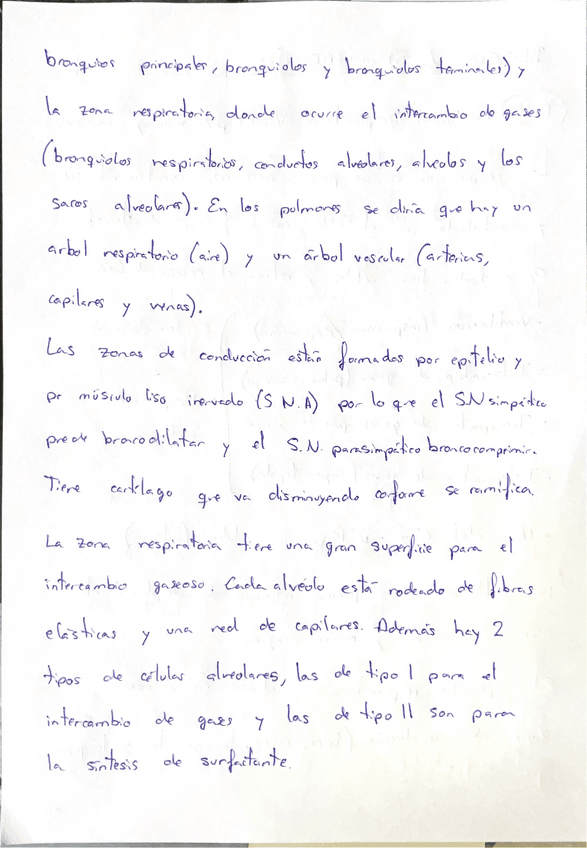 bronquios principales, bronquiolos y bronquiolos terminales) y
la zona respiratoria, donde ocurre el intercambio de gases
(bronquiolos respiratorios, conductos alveolares, alveolos y los
sacos alveolares). En los pulmones se diria que hay un
arbol respiratorio (aire) y un árbol vascular (arterias,
capilares y venas).
Las zonas de conducción están formados por epitelio y
por músculo liso inervado (S.N.A) por lo que el S.N simpático
puede broncodilatar y el S.N. parasimpático broncocomprimir.
Tiene cartílago que va disminuyendo conforme se ramifica.
La zona respiratoria tiene una gran superficie para el
intercambio gaseoso. Cada alvéolo está rodeado de fibras
elásticas y una red de capilares. Además hay 2
tipos de células alveolares, las de tipo I para el
intercambio de gases y las de tipo II son para
la síntesis de surfactante.